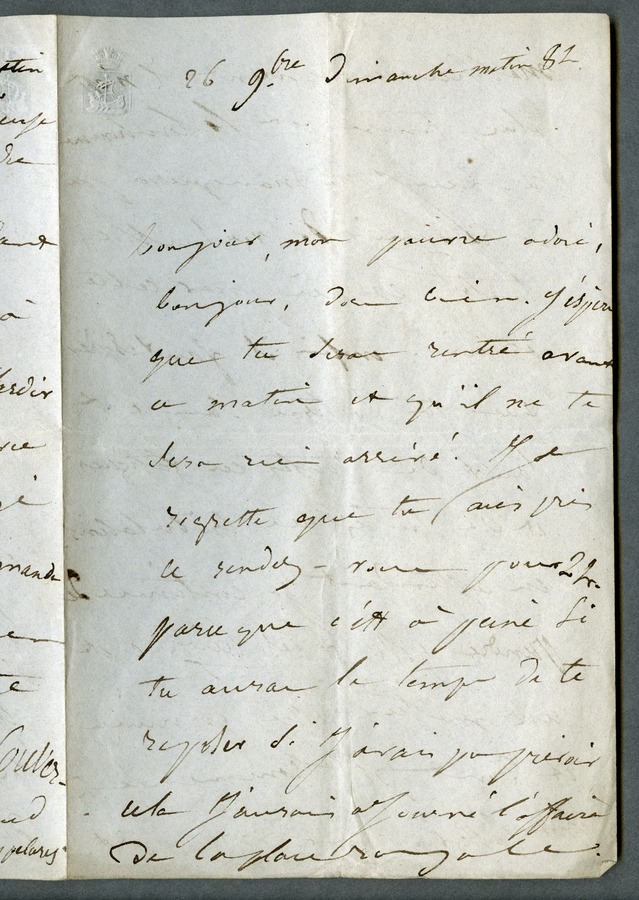 26 9bre Dimanche matin 8h
bonjour, mon pauvre adoré,
bonjour, dors bien. J'espère
que tu seras rentré avant
ce matin et qu'il ne te
sera rien arrivé! Je
regrette que tu aies pris
ce rendez-vous pour 2h.
parce que c'est à peine si
tu auras le temps de te
reposer si j'avais pu prévoir
cela j'aurais ajourné l'affaire
de la place royale.